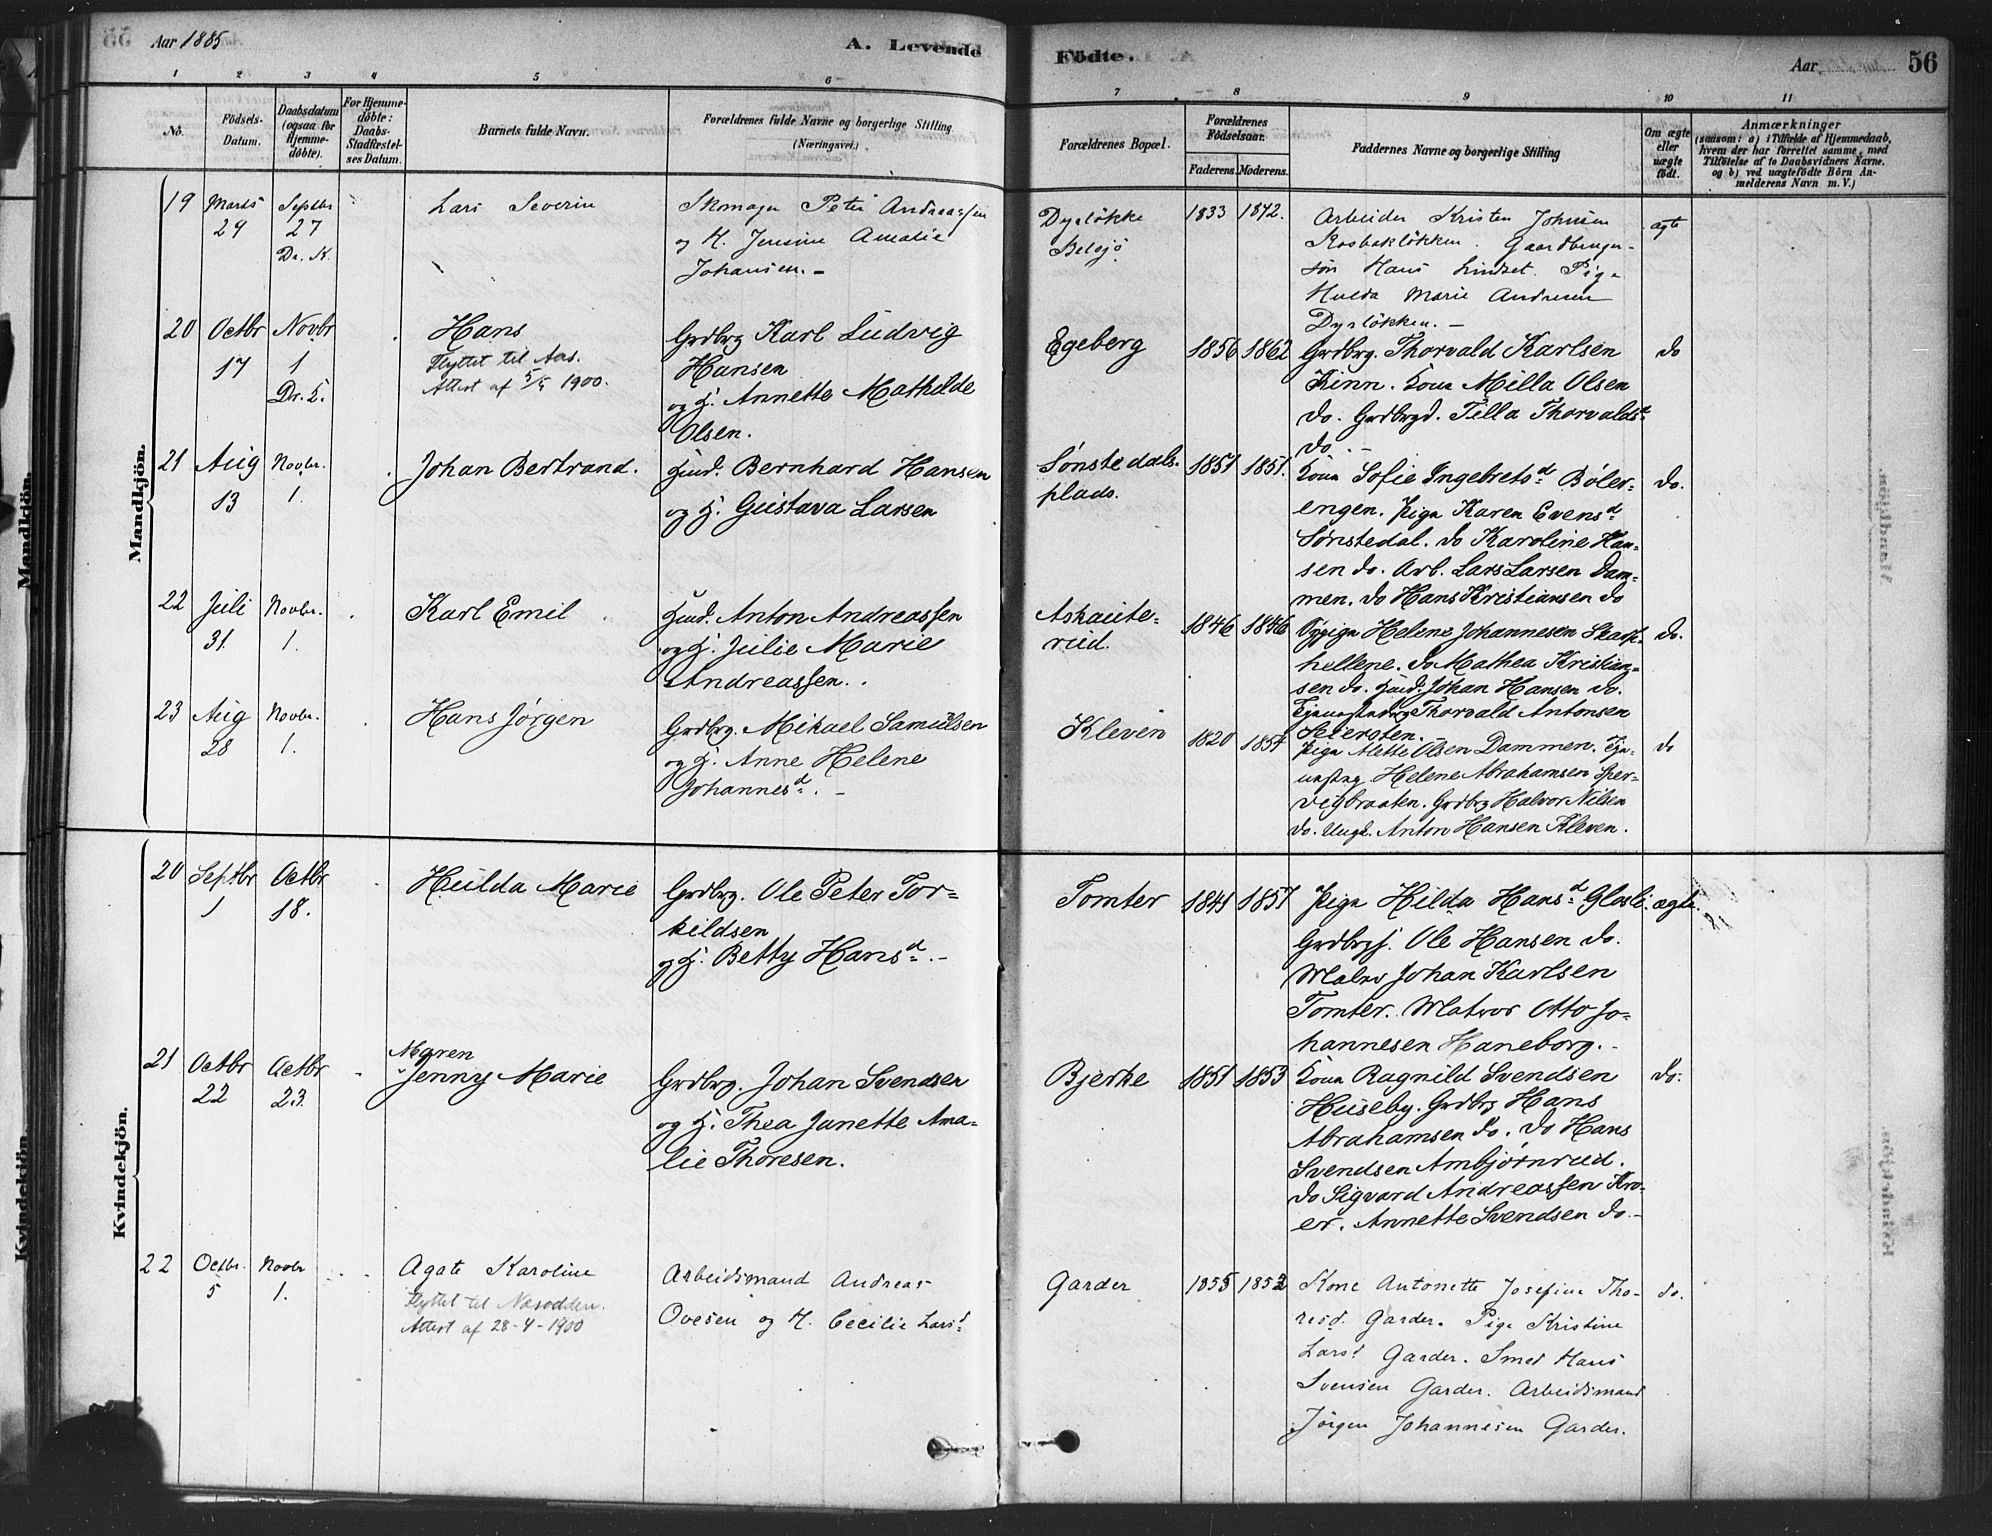 Aar 1885
A. Levende
Födte.
Aar
56
1 2 3 4 5 6
7 8 9 10 11
No.
Födsels-Datum.
Daabsdatum (ogsaa for Hjemmedöbte).
For Hjemmedöbte: Daabs-Stadfæstelses Datum.
Barnets fulde Navn.
Forældrenes fulde Navne og borgerlige Stilling (Næringsvei.)
Forældrenes Bopæl.
Forældrenes Födselsaar.
Faderens. Moderens.
Faddernes Navne og borgerlige Stilling
Om ægte eller uægte födt.
Anmærkninger
(saasom: a) i Tilfælde af Hjemmedaab,
hvem der har forrettet samme, med
Tilföielse af to Daabsvidners Navne.
og b) ved uægtefödte Börn Anmelderens Navn m. V.)
Mandkjön.
19 Marts 29 Septbr 27 Dr. K.
Lars Severin
Skomager Peter Andreassen
og H. Jensine Amalie
Johansen. –
Dyrløkke
1833 1842.
Arbeider Kristen Johnsen
Gaardbruger-
søn Hans Lindset. Pige
Hulda Marie Andresen
Dyrløkken. –
ægte
20 Octbr 17 Novbr 1 Dr. K.
Hans
Flyttet til Aas.
Attest af 1900.
Grdbrg Karl Ludvig
Hansen
og H. Annette Mathilde
Olsen.
Egeberg
1856 1862
Grdbrg. Thorvald Karlsen
Kinn. Kona Milla Olsen
do. Grdbrgd. Tilla Thorvaldsd
do. –
do
21 Aug 13 Novbr. 1.
Johan Bertrand.
Husmd. Bernhard Hansen
og H. Gustava Larsen
Sønstedals-
plads.
1851 1851.
Kona Sofie Ingebretsd Bøler-
engen. Piga Karen Evensd
Sønstedal. do Karoline Han-
sen do. Arb. Lars Larsen Dam-
men. do Hans Kristiansen do
do.
22 Juli 31. Novbr. 1.
Karl Emil
Husmd. Anton Andreassen
og H. Julie Marie
Andreassen.
Askaute-
rud.
1846 1846
Helene Johannesen
hellene. do Mathea Kristian-
sen do. Husmd. Johan Hansen do.
Thorvald Antonsen
Seiersten. –
do.
23 Aug 28 Novbr. 1.
Hans Jørgen
Grdbrg. Mikael Samuelsen
og H. Anne Helene
Johannesd. –
Kleven
1820 1854
Piga Alette Olsen Dammen.
Helene Abrahamsen Sper-
vigbraaten. Grdbrg Halvor Nilsen
do. Ungk. Anton Hansen Kleven.
do
Kvindekjön.
20 Septbr 1 Octbr 18.
Hulda Marie
Grdbrg. Ole Peter Tor-
kildsen
og H. Betty Hansd. –
Tomter
1841 1857
Piga Hilda Hansd Glosli.
Grdbrgs. Ole Hansen do.
Maler Johan Karlsen
Tomter. Matros Otto Jo-
hannesen Haneborg. –
ægte.
21 Octbr 22 Octbr 23.
Maren
Jenny Marie
Grdbrg. Johan Svendsen
og H. Thea Janette Ama-
lie Thoresen.
Bjerke
1851 1853
Kona Ragnild Svendsen
Huseby. Grdbrg Hans
Abrahamsen do. do Hans
Svendsen Ambjørnrud.
do Sigvard Andreassen Kro-
er. Annette Svendsen do. –
do.
22 Octbr. 5 Novbr 1.
Agate Karoline
Flyttet til Nesodden.
Attest af 28-4-1900
Arbeidsmand Andreas
Ovesen og H. Cecilie Larsd
Garder
1855 1852
Kone Antonette Josefine Tho-
resd. Garder. Pige Kristine
Larsd Garder. Smed Hans
Svensen Garder. Arbeidsmand
Jörgen Johannesen Garder.
do.